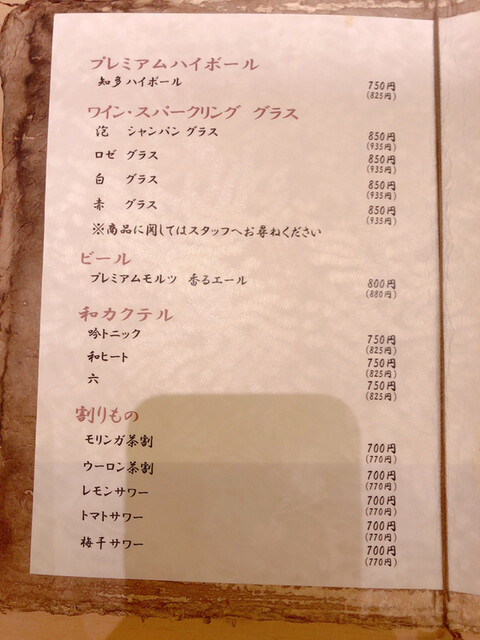 プレミアムハイボール
知多ハイボール 750円
(825円)
ワイン・スパークリング グラス
泡 シャンパン グラス 850円
(935円)
ロゼ グラス 850円
(935円)
白 グラス 850円
(935円)
赤 グラス 850円
(935円)
※商品に関してはスタッフへお尋ねください
ビール
プレミアムモルツ 香るエール 800円
(880円)
和カクテル
吟トニック 750円
(825円)
和ヒート 750円
(825円)
六 750円
(825円)
割りもの
モリンガ茶割 700円
(770円)
ウーロン茶割 700円
(770円)
レモンサワー 700円
(770円)
トマトサワー 700円
(770円)
梅干サワー 700円
(770円)